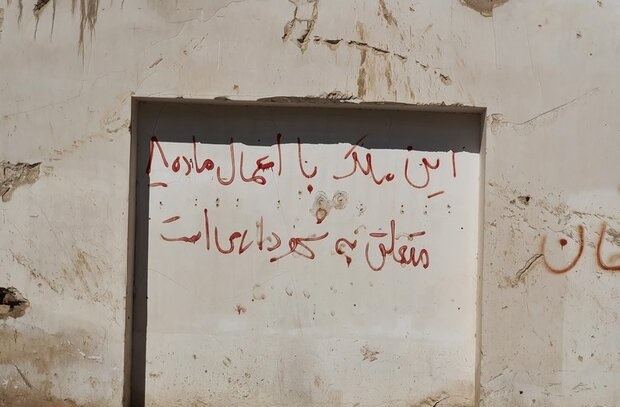 این ملک با اعمال ماده ۸
متعلق به شهرداری است